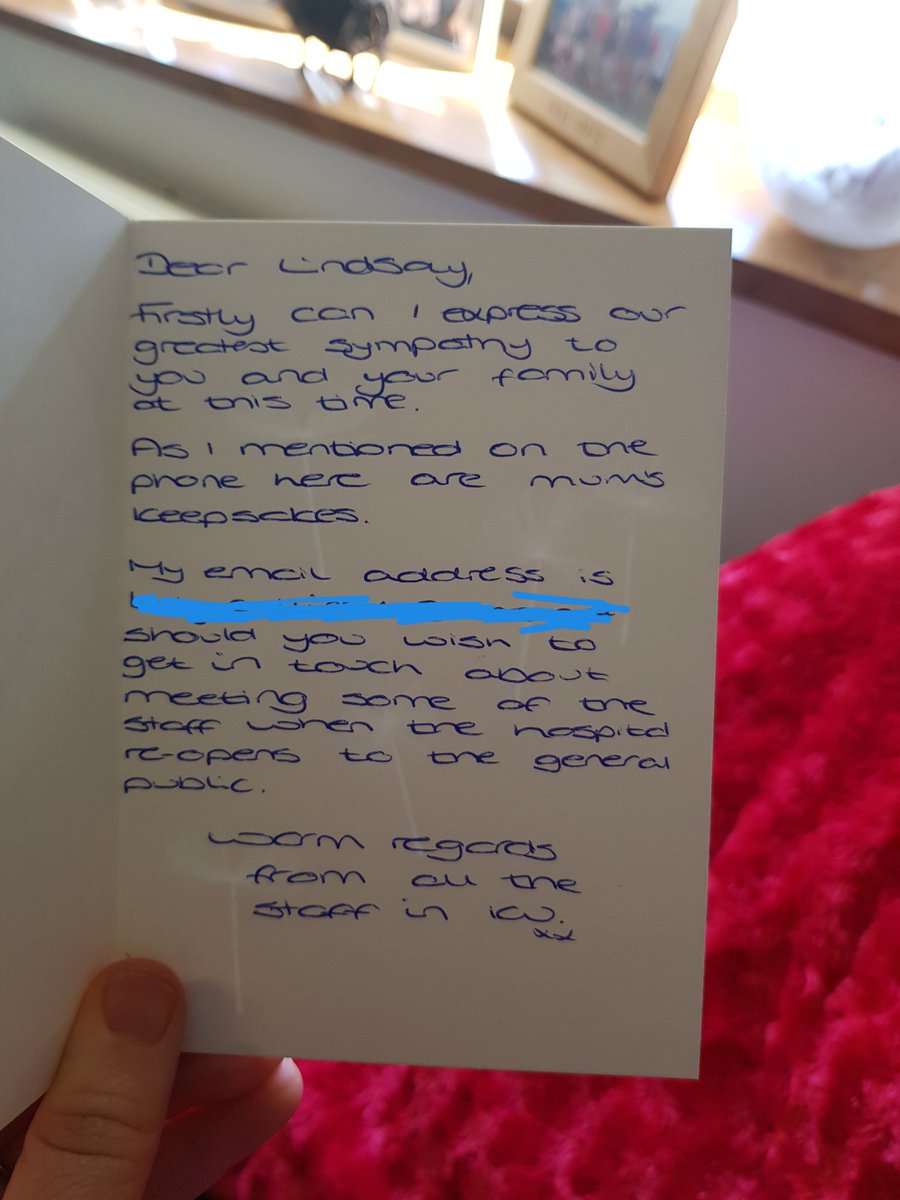 Dear Lindsay,
Firstly can I express our
greatest sympathy to
you and your family
at this time.
As I mentioned on the
phone here are mum's
keepsakes.
My email address is
should you wish to
get in touch about
meeting some of the
staff when the hospital
re-opens to the general
public.
Warm regards
from all the
staff in ICU.
xx